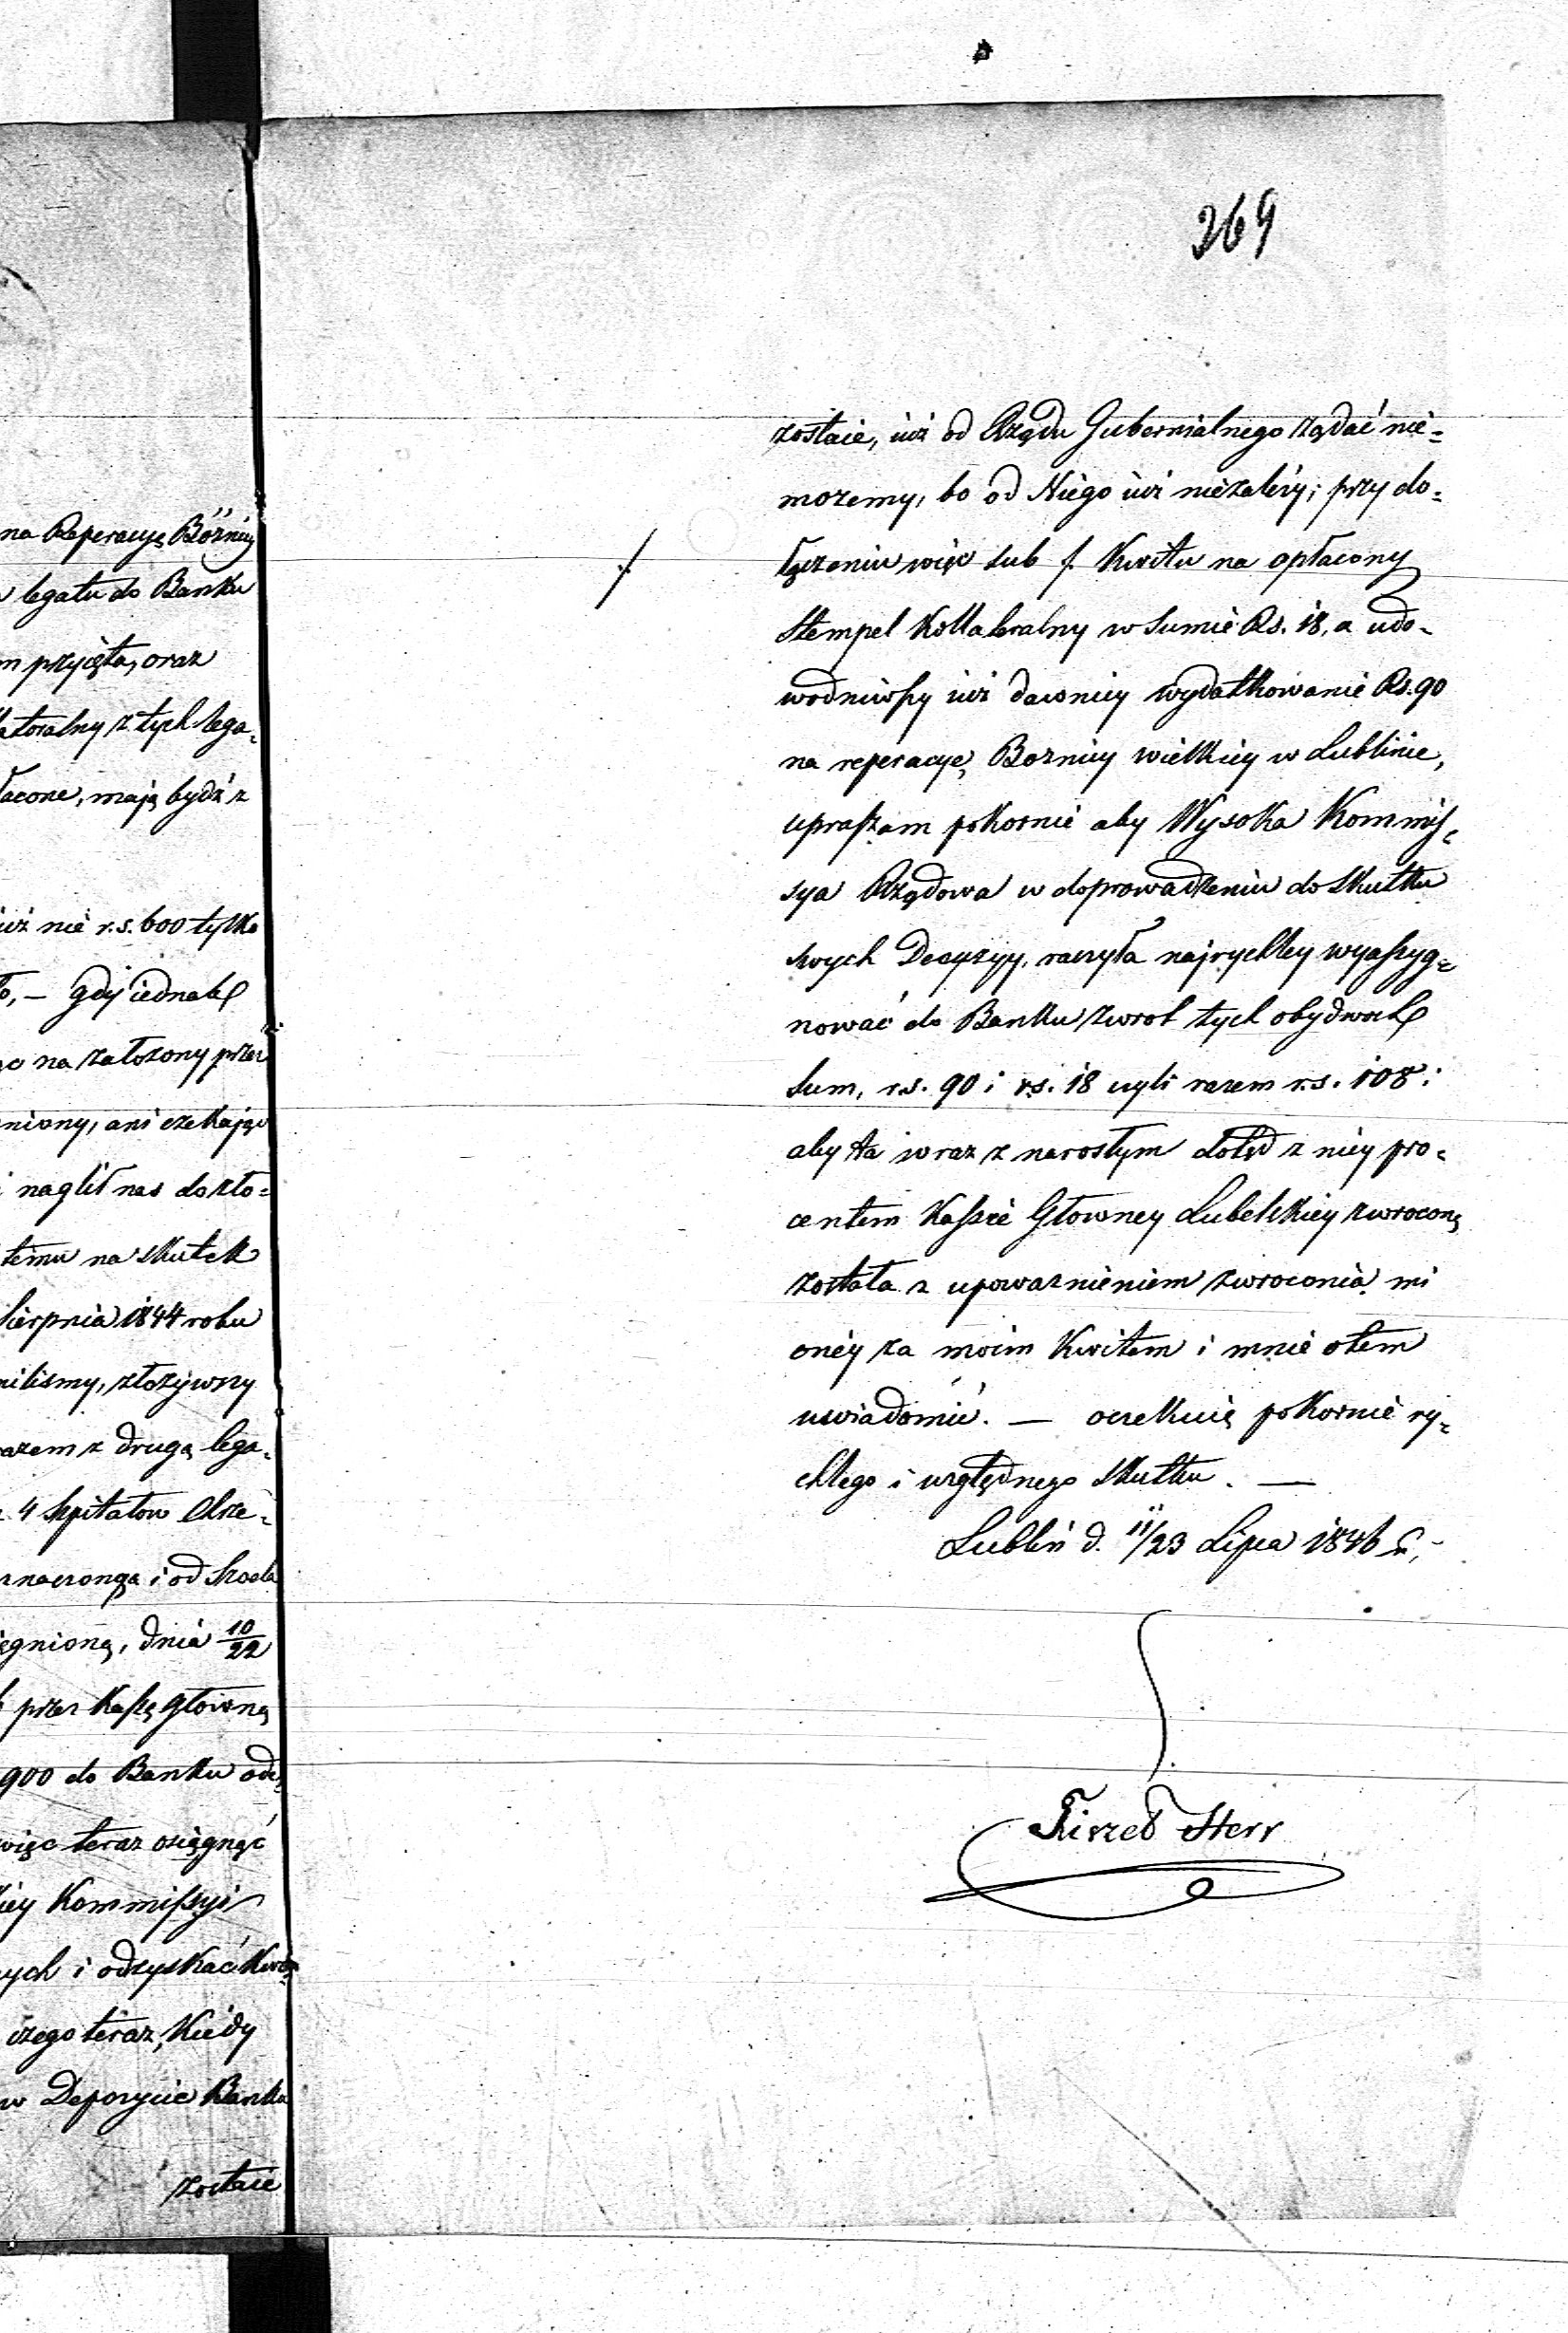 369
na Reperacyę Bóźnicy
legatu do Banku
przyięta, oraz
z tych lega=
łacone, mają bydź z
iuż nie r.s. 600 tylko
– gdy iednak
na założony przez
ani czekając
naglił nas do zło=
temu na skutek
Sierpnia 1844 roku
złożywszy
razem z drugą lega=
4 szpitalow Chrze=
i od
dnia 10/22
przez Kassę Główną
900 do Banku
więc teraz osiągnąć
Kommissyi
i odzyskać
czego teraz, Kiedy
w Depozycie Banku
zostaie
zostaie, iuż od Rządu Gubernialnego żądać nie=
możemy, bo od Niego iuż niezależy; przy do=
łączeniu więc sub ./. Kwitu na opłacony
Stempel Kollateralny w Sumie Rs. 18, a udo=
wodniwszy iuż dawniey wydatkowanie Rs. 90
na reperacyę Boznicy wielkiey w Lublinie,
upraszam pokornie aby Wysoka Kommis=
sya Rządowa w doprowadzeniu do skutku
swych Decyzyy, raczyła najrychley wyassyg=
nować do Banku zwrot tych obydwoch
Sum, r.s. 90 i r.s. 18 czyli razem r.s. 108;
aby ta wraz z narosłym dotąd z niey pro=
centem Kassie Głowney Lubelskiey zwroconą
została z upoważnieniem zwrocenia mi
oney za moim Kwitem i mnie otem
uwiadomić. — oczekuię pokornie ry=
chłego i względnego Skutku. —
Lublin d. 11/23 Lipca 1846 r.
./.
Herr